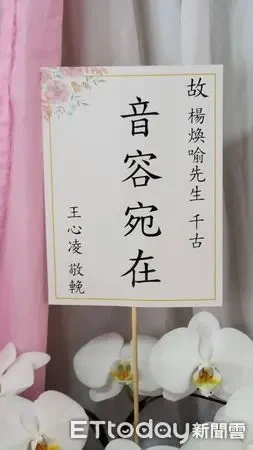 故 楊煥喻先生 千古
音容宛在
王心凌 敬輓
ETtoday新聞雲